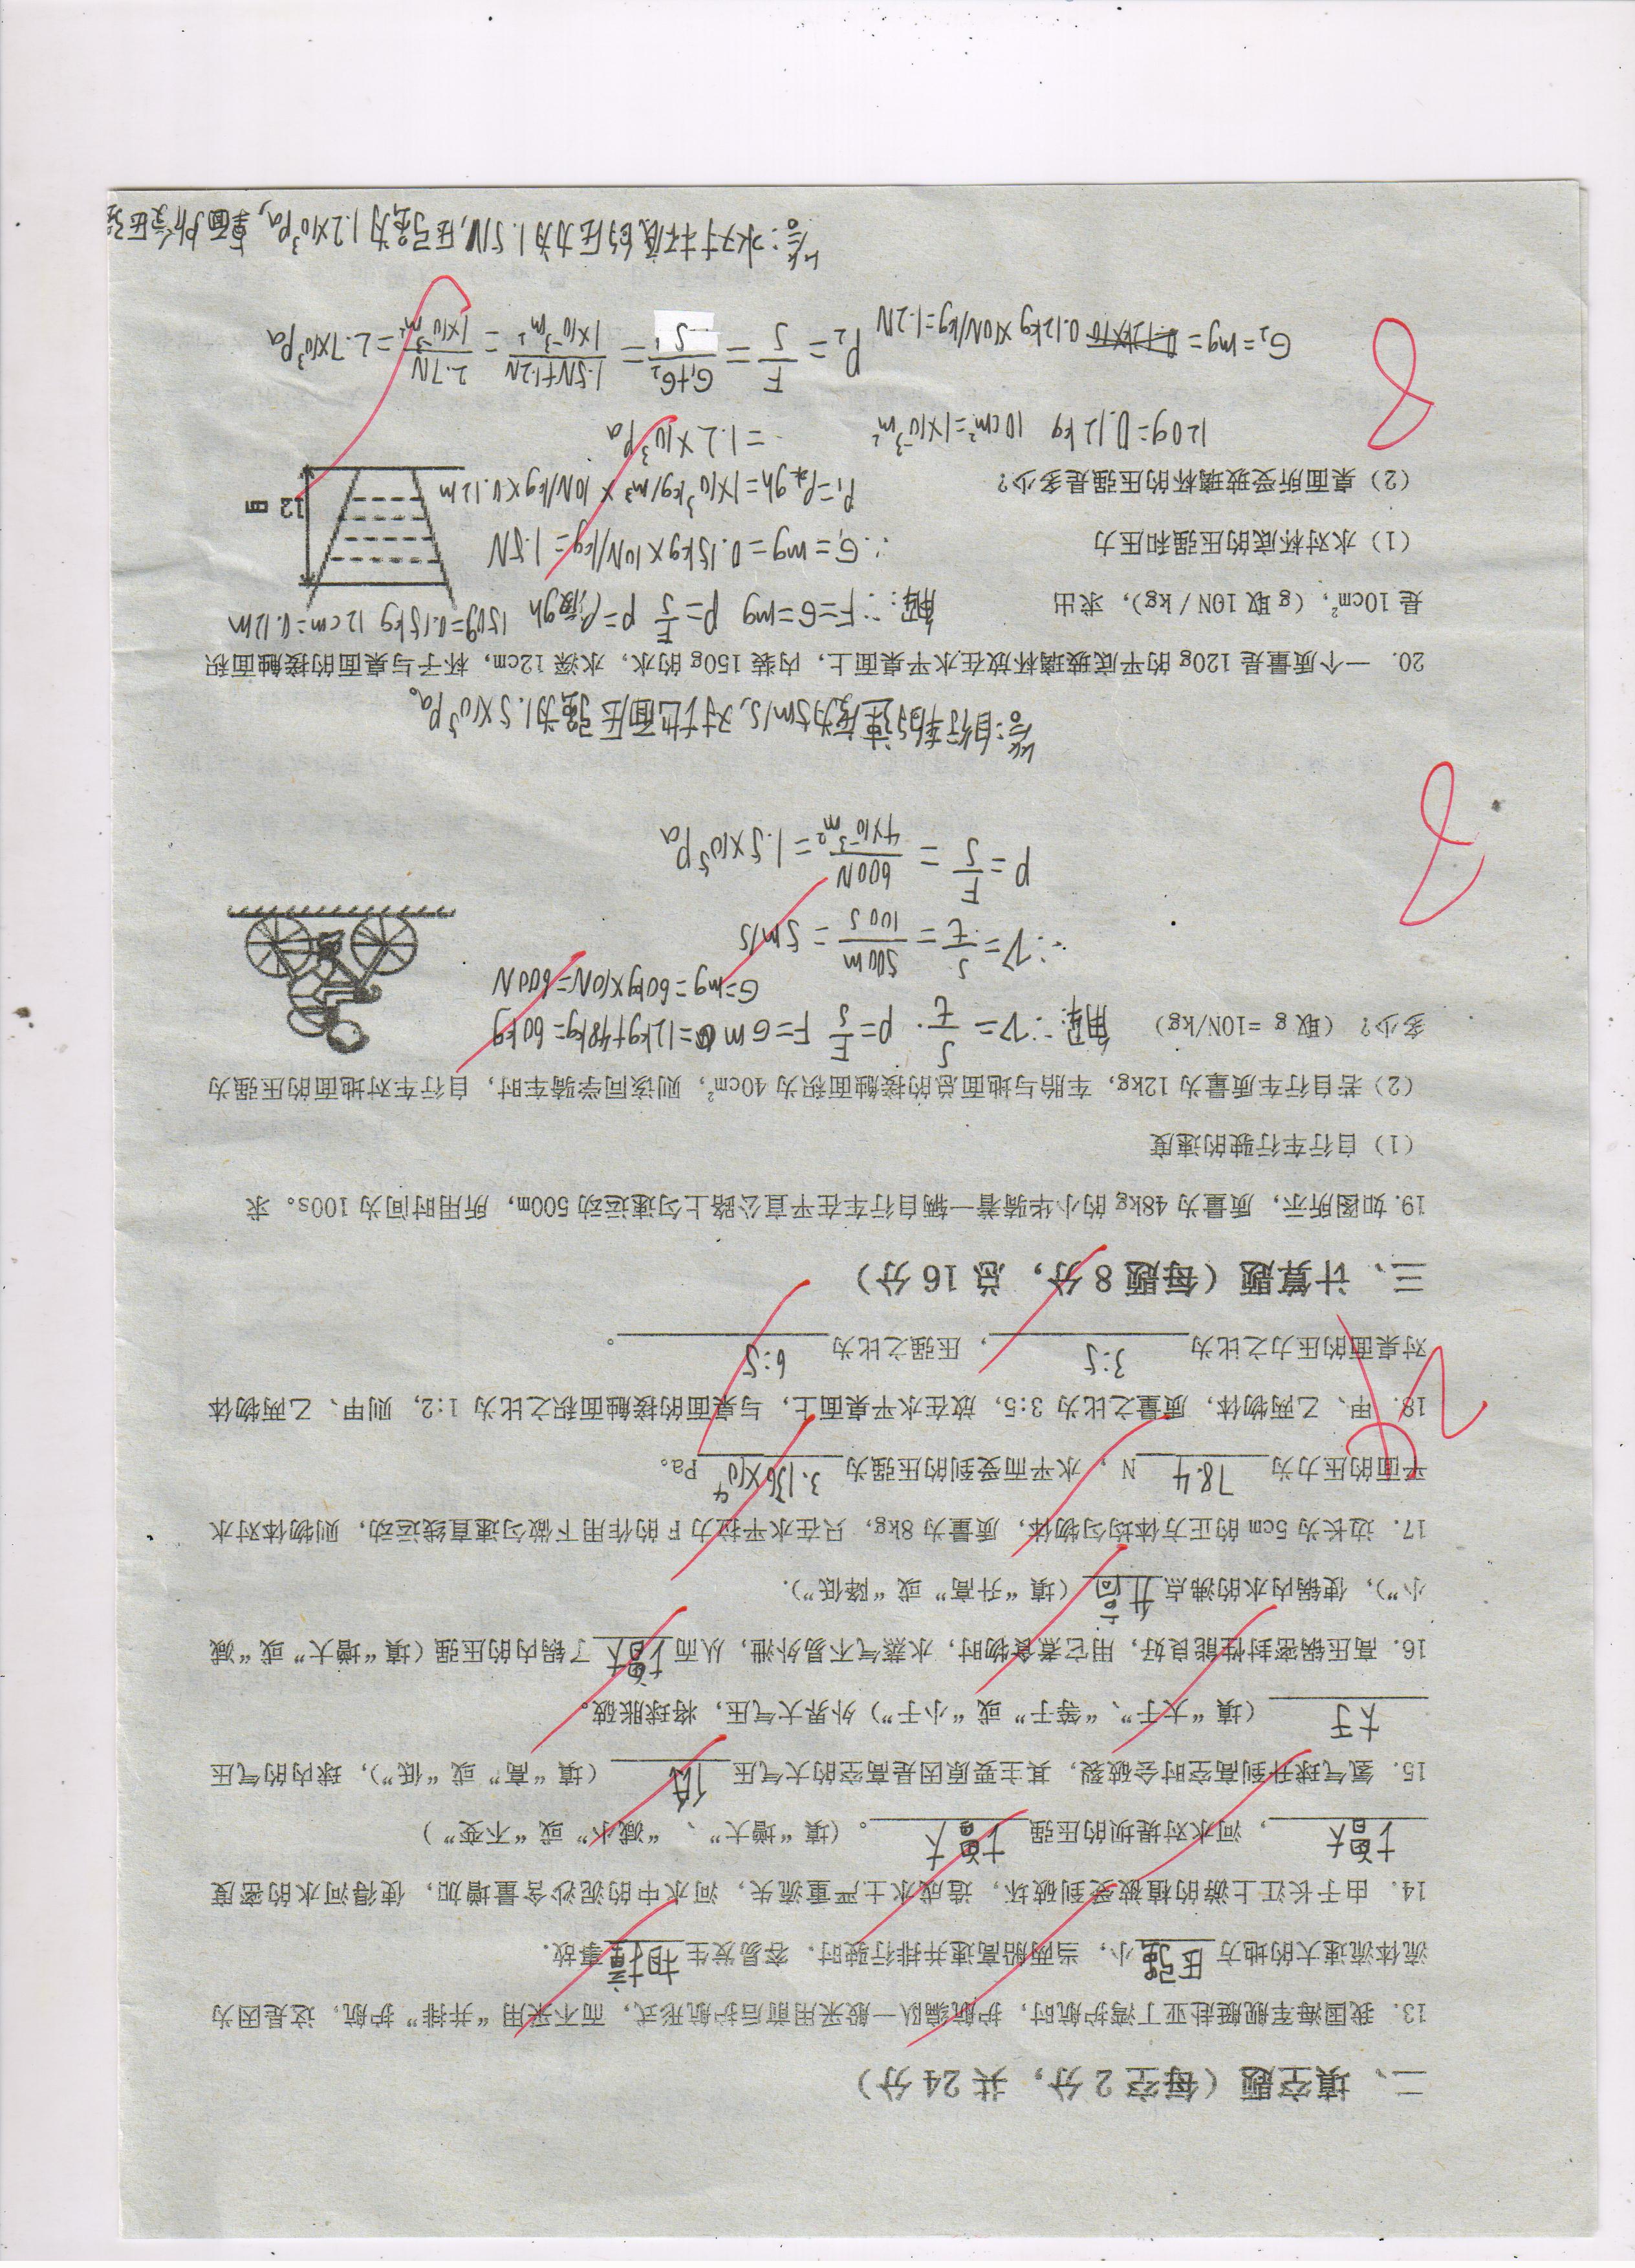 二、填空题（每空2分，共24分）
13. 我国海军舰艇赴亚丁湾护航时，护航编队一般采用前后护航形式，而不采用“并排”护航，这是因为
流体流速大的地方压强小，当两船高速并排行驶时．容易发生相撞事故.
14. 由于长江上游的植被受到破坏，造成水土严重流失，河水中的泥沙含量增加，使得河水的密度
增大，河水对堤坝的压强增大。（填“增大”、“减小”或“不变”）
15. 氢气球升到高空时会破裂，其主要原因是高空的大气压低（填“高”或“低”），球内的气压
大于（填“大于”、“等于”或“小于”）外界大气压，将球胀破。
16. 高压锅密封性能良好，用它煮食物时，水蒸气不易外泄，从而增大了锅内的压强（填“增大”或“减
小”），使锅内水的沸点升高（填“升高”或“降低”）.
17. 边长为5cm的正方体均匀物体，质量为8kg，只在水平拉力F的作用下做匀速直线运动，则物体对水
平面的压力为78.4N，水平面受到的压强为3.136×10⁴Pa。
18. 甲、乙两物体，质量之比为3:5，放在水平桌面上，与桌面的接触面积之比为1:2，则甲、乙两物体
对桌面的压力之比为3:5，压强之比为6:5。
24
三、计算题（每题8分，总16分）
19.如图所示，质量为48kg的小华骑着一辆自行车在平直公路上匀速运动500m，所用时间为100s。求
（1）自行车行驶的速度
（2）若自行车质量为12kg，车胎与地面总的接触面积为40cm²，则该同学骑车时，自行车对地面的压强为
多少？（取g=10N/kg）
解：∵V=S/t. P=F/S F=G m=12kg+48kg=60kg
G=mg=60kg×10N=600N
∴V=S/t=500m/100s=5m/s
P=F/S=600N/4×10⁻³m²=1.5×10⁵Pa
8
答：自行车的速度为5m/s，对地面压强为1.5×10⁵Pa。
20. 一个质量是120g的平底玻璃杯放在水平桌面上，内装150g的水，水深12cm，杯子与桌面的接触面积
是10cm²，（g取10N/kg），求出
（1）水对杯底的压强和压力
（2）桌面所受玻璃杯的压强是多少？
解：∵F=G=mg P=F/S P=ρ液gh 150g=0.15kg 12cm=0.12m
∴G₁=mg=0.15kg×10N/kg=1.5N
P₁=ρ水gh=1×10³kg/m³×10N/kg×0.12m
=1.2×10³Pa
12
120g=0.12kg 10cm²=1×10⁻³m²
G₂=mg=0.12kg×10N/kg=1.2N
P₂=F/S=G₁+G₂/S=1.5N+1.2N/1×10⁻³m²=2.7N/1×10⁻³m²=2.7×10³Pa
8
答：水对杯底的压力为1.5N，压强为1.2×10³Pa，桌面所受压强